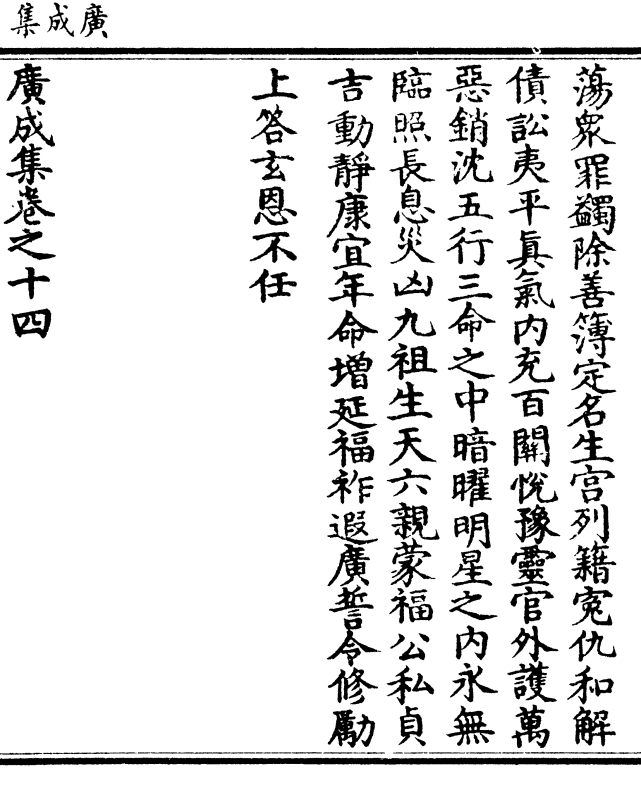 廣成集
蕩衆罪蠲除善簿定名生宮列籍寃仇和解
債訟夷平眞氣内充百關悅豫靈官外護萬
惡銷沈五行三命之中暗曜明星之内永無
臨照長息災凶九祖生天六親蒙福公私貞
吉動靜康宜年命増延福祚遐廣誓令修勵
上答玄恩不任
廣成集卷之十四